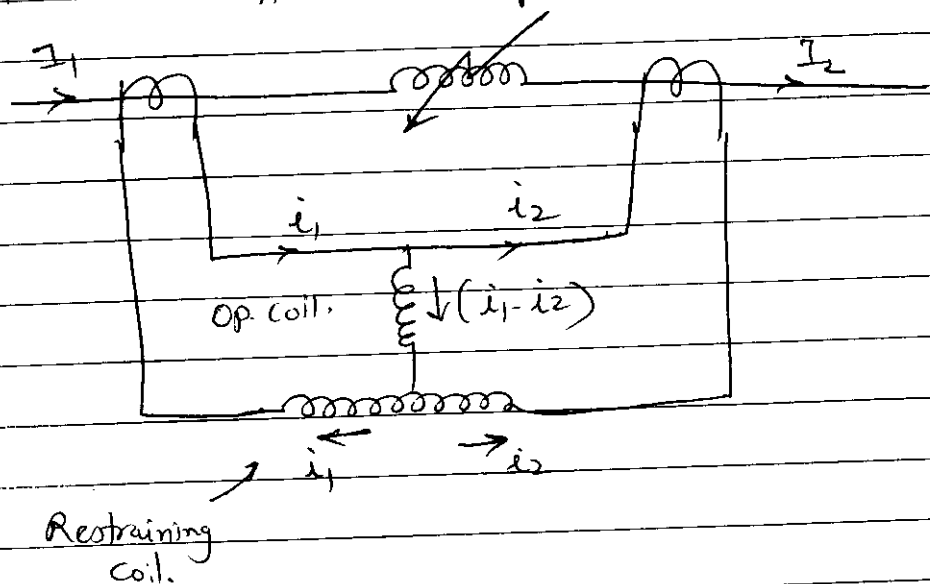 I₁
I₂
i₁
i₂
Op. coil.
(i₁-i₂)
i₁
i₂
Restraining
coil.